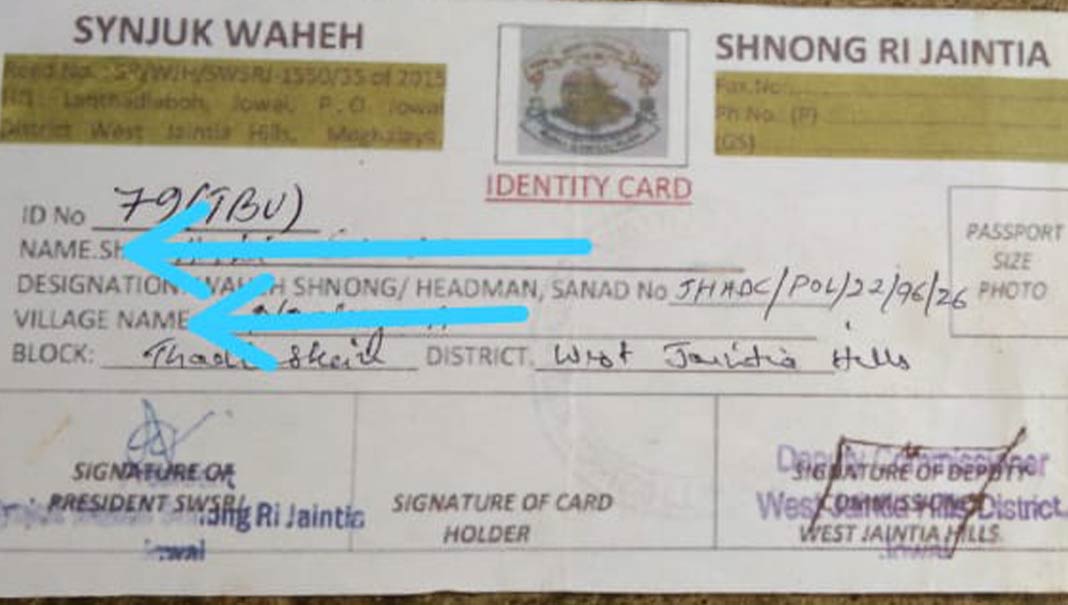 SYNJUK WAHEH
SHNONG RI JAINTIA
Regd No. : SR/WJH/SWSRJ-1550/35 of 2015
HQ. Lanchadlaboh, Jowai, P.O Jowai
District West Jaintia Hills, Meghalaya.
Fax.No:
Ph No. (P)
(GS)
IDENTITY CARD
ID No 79(TBU)
NAME.SH
PASSPORT
SIZE
PHOTO
DESIGNATION: WAHEH SHNONG/ HEADMAN, SANAD No JHADC/POL/22/96/26
VILLAGE NAME
BLOCK: DISTRICT. West Jaintia Hills
SIGNATURE OF
PRESIDENT SWSRJ
Ri Jaintia
Jowai
SIGNATURE OF CARD
HOLDER
Deputy Commissioner
SIGNATURE OF DEPUTY
West Jaintia Hills District
COMMISSIONER
WEST JAINTIA HILLS.
Jowai